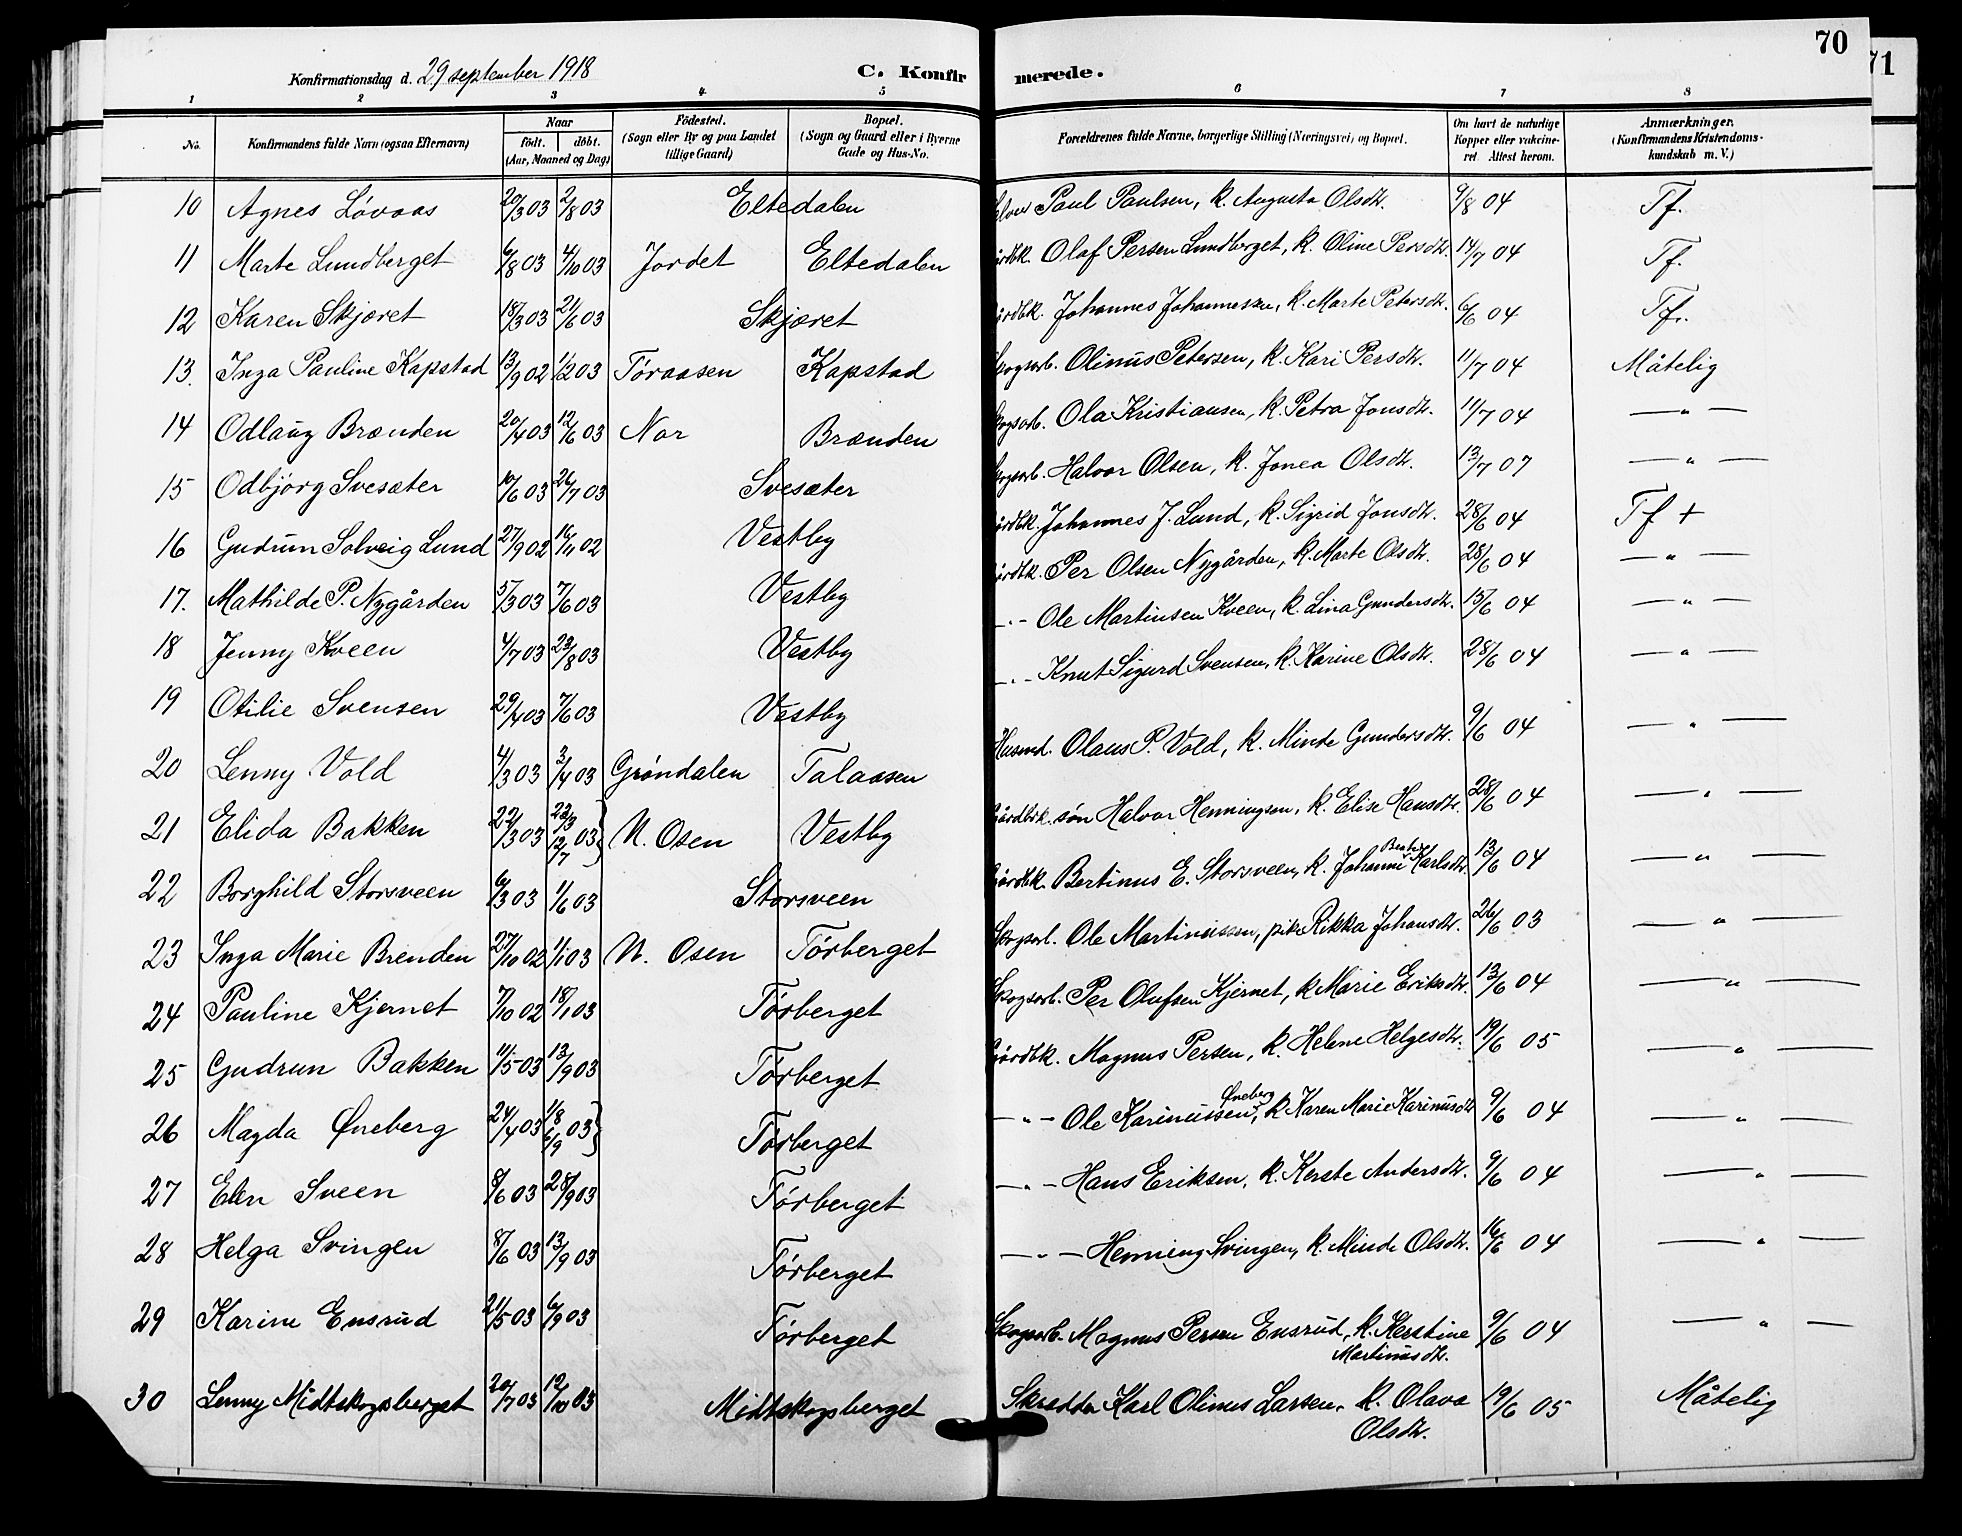 70
71
Konfirmationsdag d. 29 september 1918 C. Konfir merede.
1 2 3 4 5 6 7 8
No. Konfirmandens fulde Navn (ogsaa Efternavn) Naar født. døbt. (Aar, Maaned og Dag) Fødested. (Sogn eller By og paa Landet tillige Gaard) Bopæl. (Sogn og Gaard eller i Byerne Gade og Hus-No. Forældrenes fulde Navne, borgerlige Stilling (Næringsvei) og Bopæl. Om havt de naturlige Kopper eller vakcineret. Attest herom. Anmærkninger. (Konfirmandens Kristendomskundskab m. V.)
10 Agnes Løvaas 20/3 03 2/8 03 Eltedalen Paul Paulsen, k. Augusta Olsdtr. 9/8 04 Tf.
11 Marte Lundberget 6/8 03 4/10 03 Jordet Eltedalen årdbk. Olaf Persen Lundberget, k. Oline Persdtr. 14/7 04 Tf.
12 Karen Skjæret 18/3 03 21/6 03 Skjæret årdbk. Johannes Johannessen, k. Marte Petersdtr. 6/6 04 Tf.
13. Inga Pauline Kapstad 13/9 02 1/2 03 Tøraasen Kapstad Skogsarb. Olinus Petersen, k. Kari Persdtr. 11/7 04 Måtelig
14 Odlaug Brænden 20/4 03 12/6 03 Nor Brænden kogsarb. Ola Kristiansen, k. Petra Jonsdtr. 11/7 04 — " —
15 Odbjørg Svesæter 10/6 03 26/7 03 Svesæter kogsarb. Halvor Olsen, k. Jonea Olsdtr. 13/7 07 — " —
16 Gudrun Solveig Lund 27/9 02 16/11 02 Vestby årdbk. Johannes J. Lund, k. Sigrid Jonsdtr. 28/6 04 Tf +
17. Mathilde P. Nygården 5/3 03 7/6 03 Vestby årdbk. Per Olsen Nygården, k. Marte Olsdtr. 28/6 04 — " —
18 Jenny Kveen 4/7 03 23/8 03 Vestby — " — Ole Martinsen Kveen, k. Lina Gundersdtr. 15/6 04 — " —
19 Otilie Svensen 29/4 03 7/6 03 Vestby — " — Knut Sigurd Svensen, k. Karine Olsdtr. 28/6 04 — " —
20 Lenny Vold 4/3 03 3/4 03 Grøndalen Talaasen Husmd. Olaus P. Vold, k. Minde Gundersdtr. 9/6 04 — " —
21 Elida Bakken 22/3 03 23/3 12/7 03 N. Osen Vestby Gårdbrk. søn Halvor Henningsen, k. Elise Hansdtr. 28/6 04 — " —
22 Borghild Storsveen 6/3 03 1/6 03 Storsveen Gårdbk. Bertinus E. Storsveen, k. Johanne Karlsdtr. 13/6 04 — " —
23 Inga Marie Brenden 27/10 02 1/1 03 N. Osen Tørberget Skogsarb. Ole Martinussen, pike Rikka Johansdtr. 26/6 03 — " —
24 Pauline Kjernet 7/10 02 18/1 03 Tørberget Skogsarb. Per Olufsen Kjernet, k Marie Eriksdtr. 13/6 04 — " —
25 Gudrun Bakken 11/5 03 13/9 03 Tørberget Gårdbk. Magnus Persen, k. Helene Helgesdtr. 19/6 05 — " —
26 Magda Øneberg 24/4 03 1/8 6/9 03 Tørberget — " — Ole Karinussen Øneberg, k. Karen Marie Karinusdtr 9/6 04 — " —
27 Elen Sveen 8/6 03 28/9 03 Tørberget — " — Hans Eriksen, k. Kerste Andersdtr. 9/6 04 — " —
28 Helga Svingen 8/6 03 13/9 03 Tørberget — " — Henning Svingen, k. Minde Olsdtr. 16/6 04 — " —
29 Karine Ensrud 21/5 03 6/9 03 Tørberget Skogsarb. Magnus Persen Ensrud, k. Kerstine 9/6 04 — " —
Martinusdtr.
30 Lenny Midtskogsberget 20/7 03 12/10 03 Midtskogsberget Skrædder Karl Olinus Larsen, k. Olava 19/6 05 Måtelig
Olsdtr.